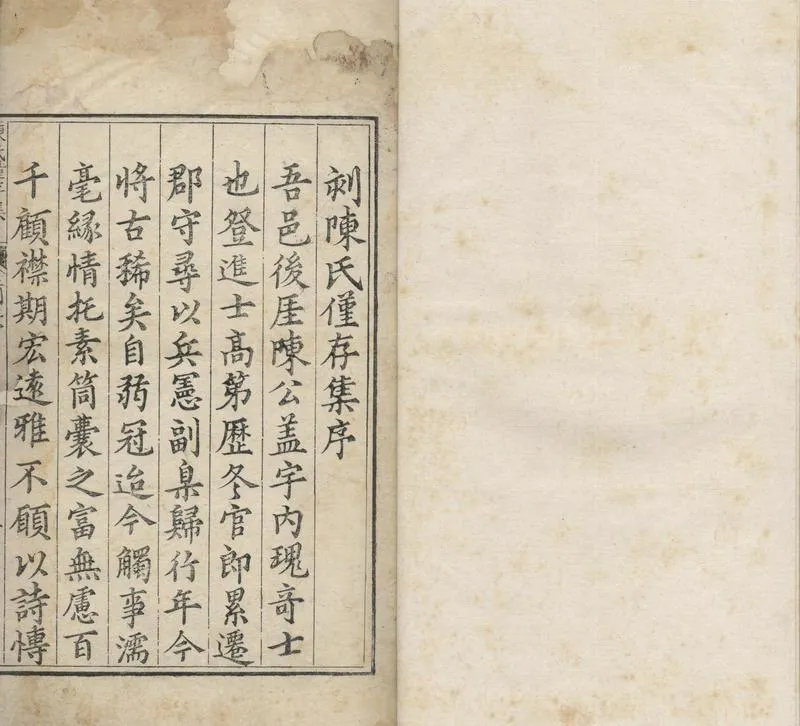 刻陳氏僅存集序
吾邑後厓陳公盖宇内瑰竒士
也登進士高第歷冬官郎累遷
郡守尋以兵憲副臬歸行年今
將古稀矣自弱冠迨今觸事濡
毫緣情托素筒囊之富無慮百
千顧襟期宏遠雅不願以詩傳